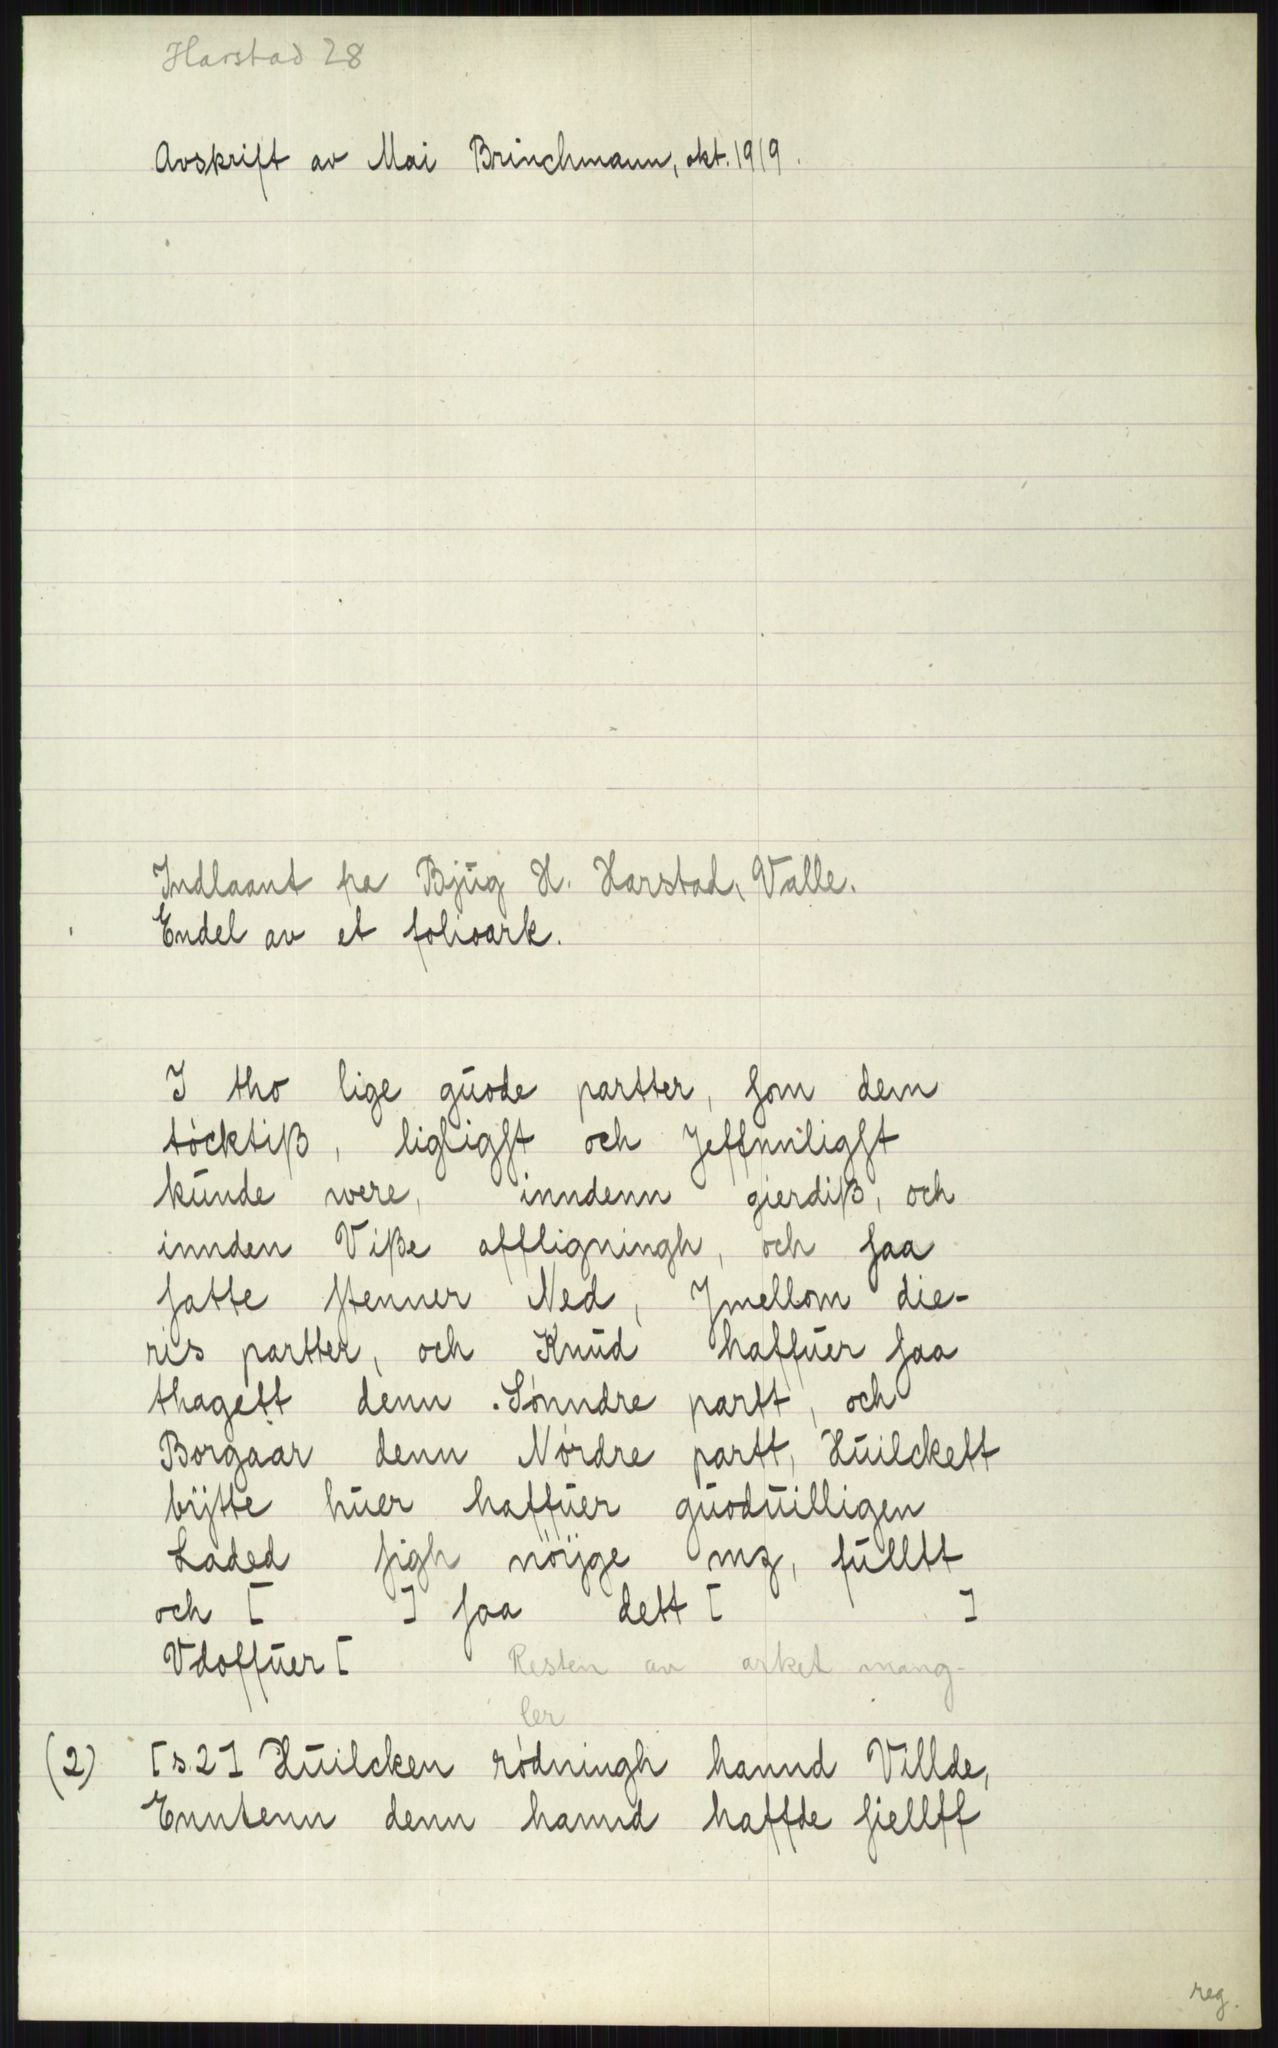 Harstad 28
Avskrift av Mai Brinchmann, okt. 1919.
Indlaant fra Bjug H. Harstad, Valle.
Endel av et folioark.
I tho lige guode partter, som dem
töcktiß, ligligst och Jeffnnligst
kunde were, inndenn gierdiß, och
innden Viße affligningh, och saa
satte stenner Ned, Jmellom die-
ris partter, och Knud haffuer saa
thagett denn Sönndre partt, och
Borgaar denn Nördre partt, Huilckett
bÿtte huer haffuer guoduilligen
Laded sigh nöÿge mz, fulltt
och [ ] saa dett [ ]
Vdoffuer [ Resten av arket mang-
ler
(2) [s. 2] Huilcken rödningh hannd Villde,
Enntenn denn hannd haffde siellff
reg.